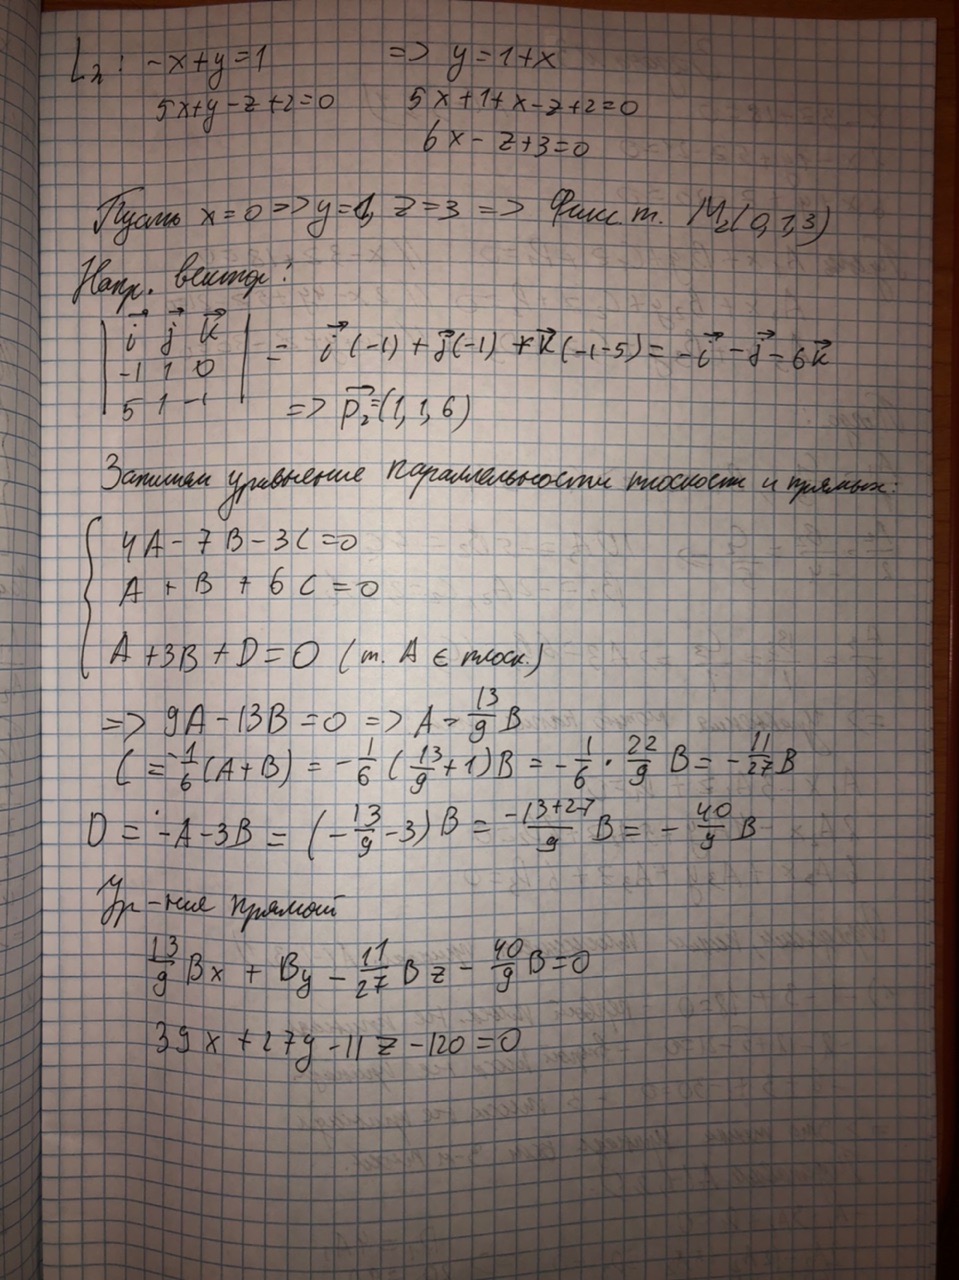 L₂: -x+y=1 => y=1+x
5x+y-z+2=0 5x+1+x-z+2=0
6x-z+3=0
Пусть x=0 => y=1, z=3 => Фикс. т. M₂(0,1,3)
Напр. вектор:
| i⃗ j⃗ k⃗ |
| -1 1 0 | = i⃗(-1)+j⃗(-1)+k⃗(-1-5)= -i⃗-j⃗-6k⃗
| 5 1 -1 | => p⃗₂=(1,1,6)
Запишем уравнение параллельности плоскости и прямых:
{ 4A-7B-3C=0
A+B+6C=0
A+3B+D=0 (т. A ∈ плоск.)
=> 9A-13B=0 => A=13/9 B
C=-1/6(A+B)=-1/6(13/9+1)B=-1/6·22/9 B=-11/27 B
D=-A-3B=(-13/9-3)B=-13+27/9 B=-40/9 B
Ур-ния прямой
13/9 Bx+By-11/27 Bz-40/9 B=0
39x+27y-11z-120=0